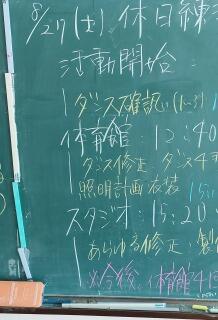 8/27(土)休日練
活動開始:
ダンス確認(1~3)
体育館:12:40
ダンス修正 ダンス4
照明計画 衣装
スタジオ:15:20
あらゆる修正・製
※今後、体育館4